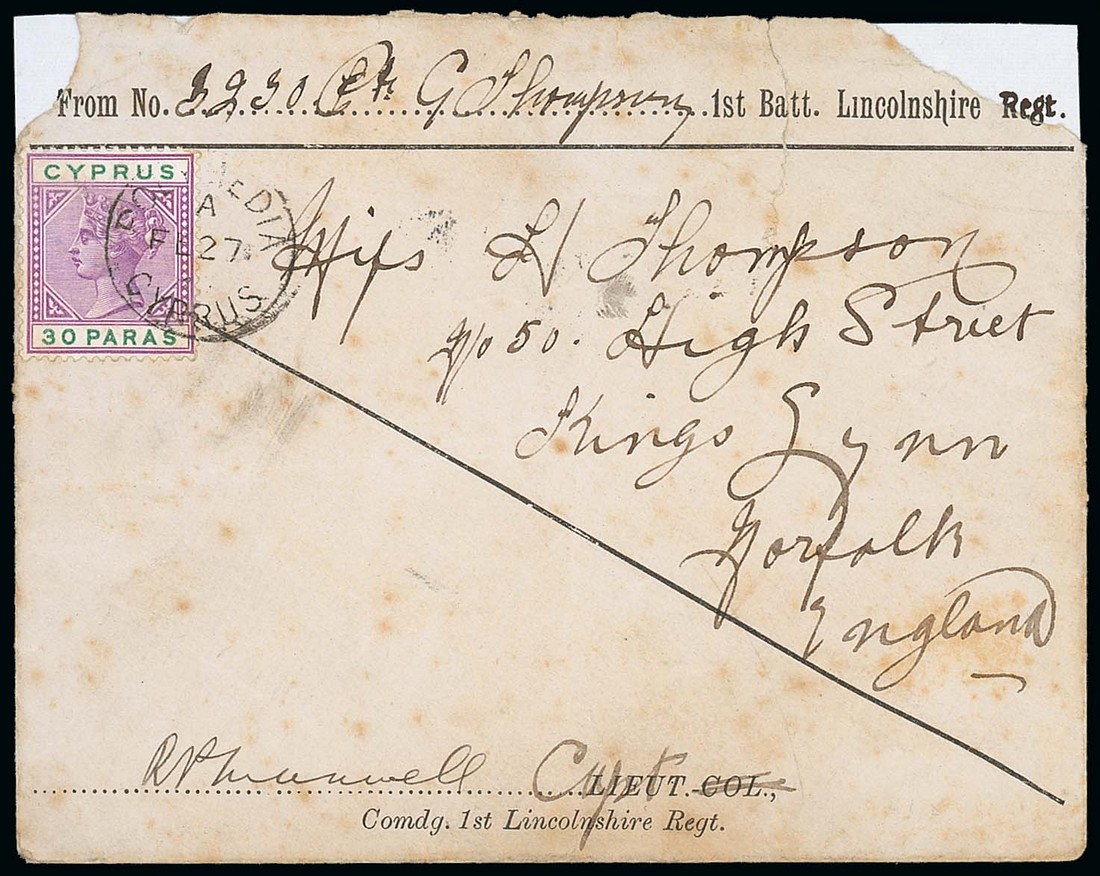 From No. 3230 Pte G Thompson 1st Batt. Lincolnshire Regt.
CYPRUS
30 PARAS
A
FE 27
CYPRUS
Miss L Thompson
c/o 50. High Street
Kings Lynn
Norfolk
England
Capt LIEUT.-COL.,
Comdg. 1st Lincolnshire Regt.